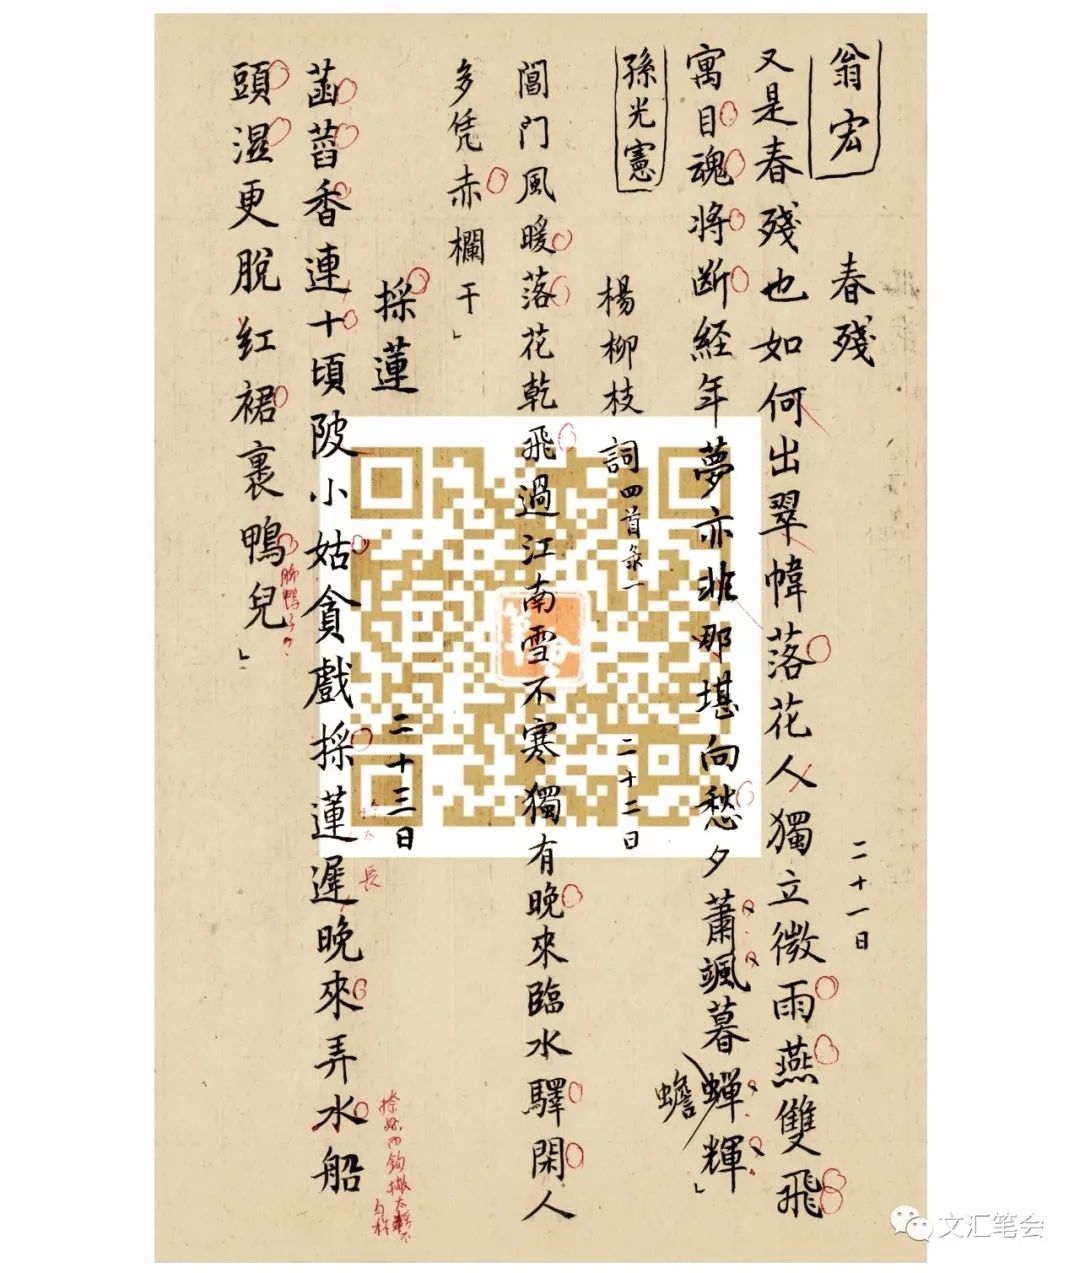 翁宏 春殘 二十一日
又是春殘也如何出翠幃落花人獨立微雨燕雙飛
寓目魂將断経年夢亦非那堪向愁夕蕭颯暮蟬輝」
蟾
孫光憲 楊柳枝詞四首录一 二十二日
閶門風暖落花乾飛過江南雪不寒獨有晚來臨水驛閑人
多凭赤欄干」
採蓮 二十三日
長
菡萏香連十頃陂小姑貪戲採蓮遲晚來弄水船
頭濕更脫红裙裹鴨兒」
筆會
文汇笔会